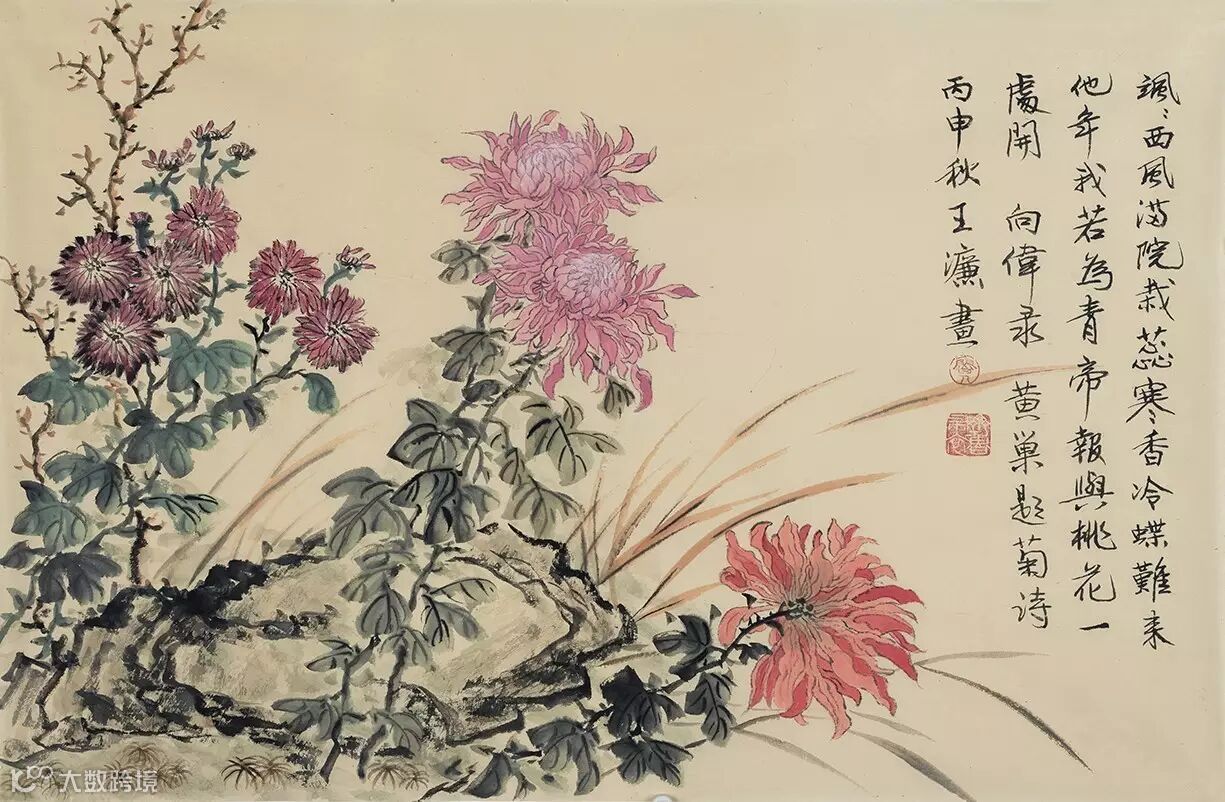 颯〻西風满院栽蕊寒香冷蝶難来
他年我若為青帝報與桃花一
處開 向偉录 黄巢題菊诗
丙申秋王濂畫
大数跨境